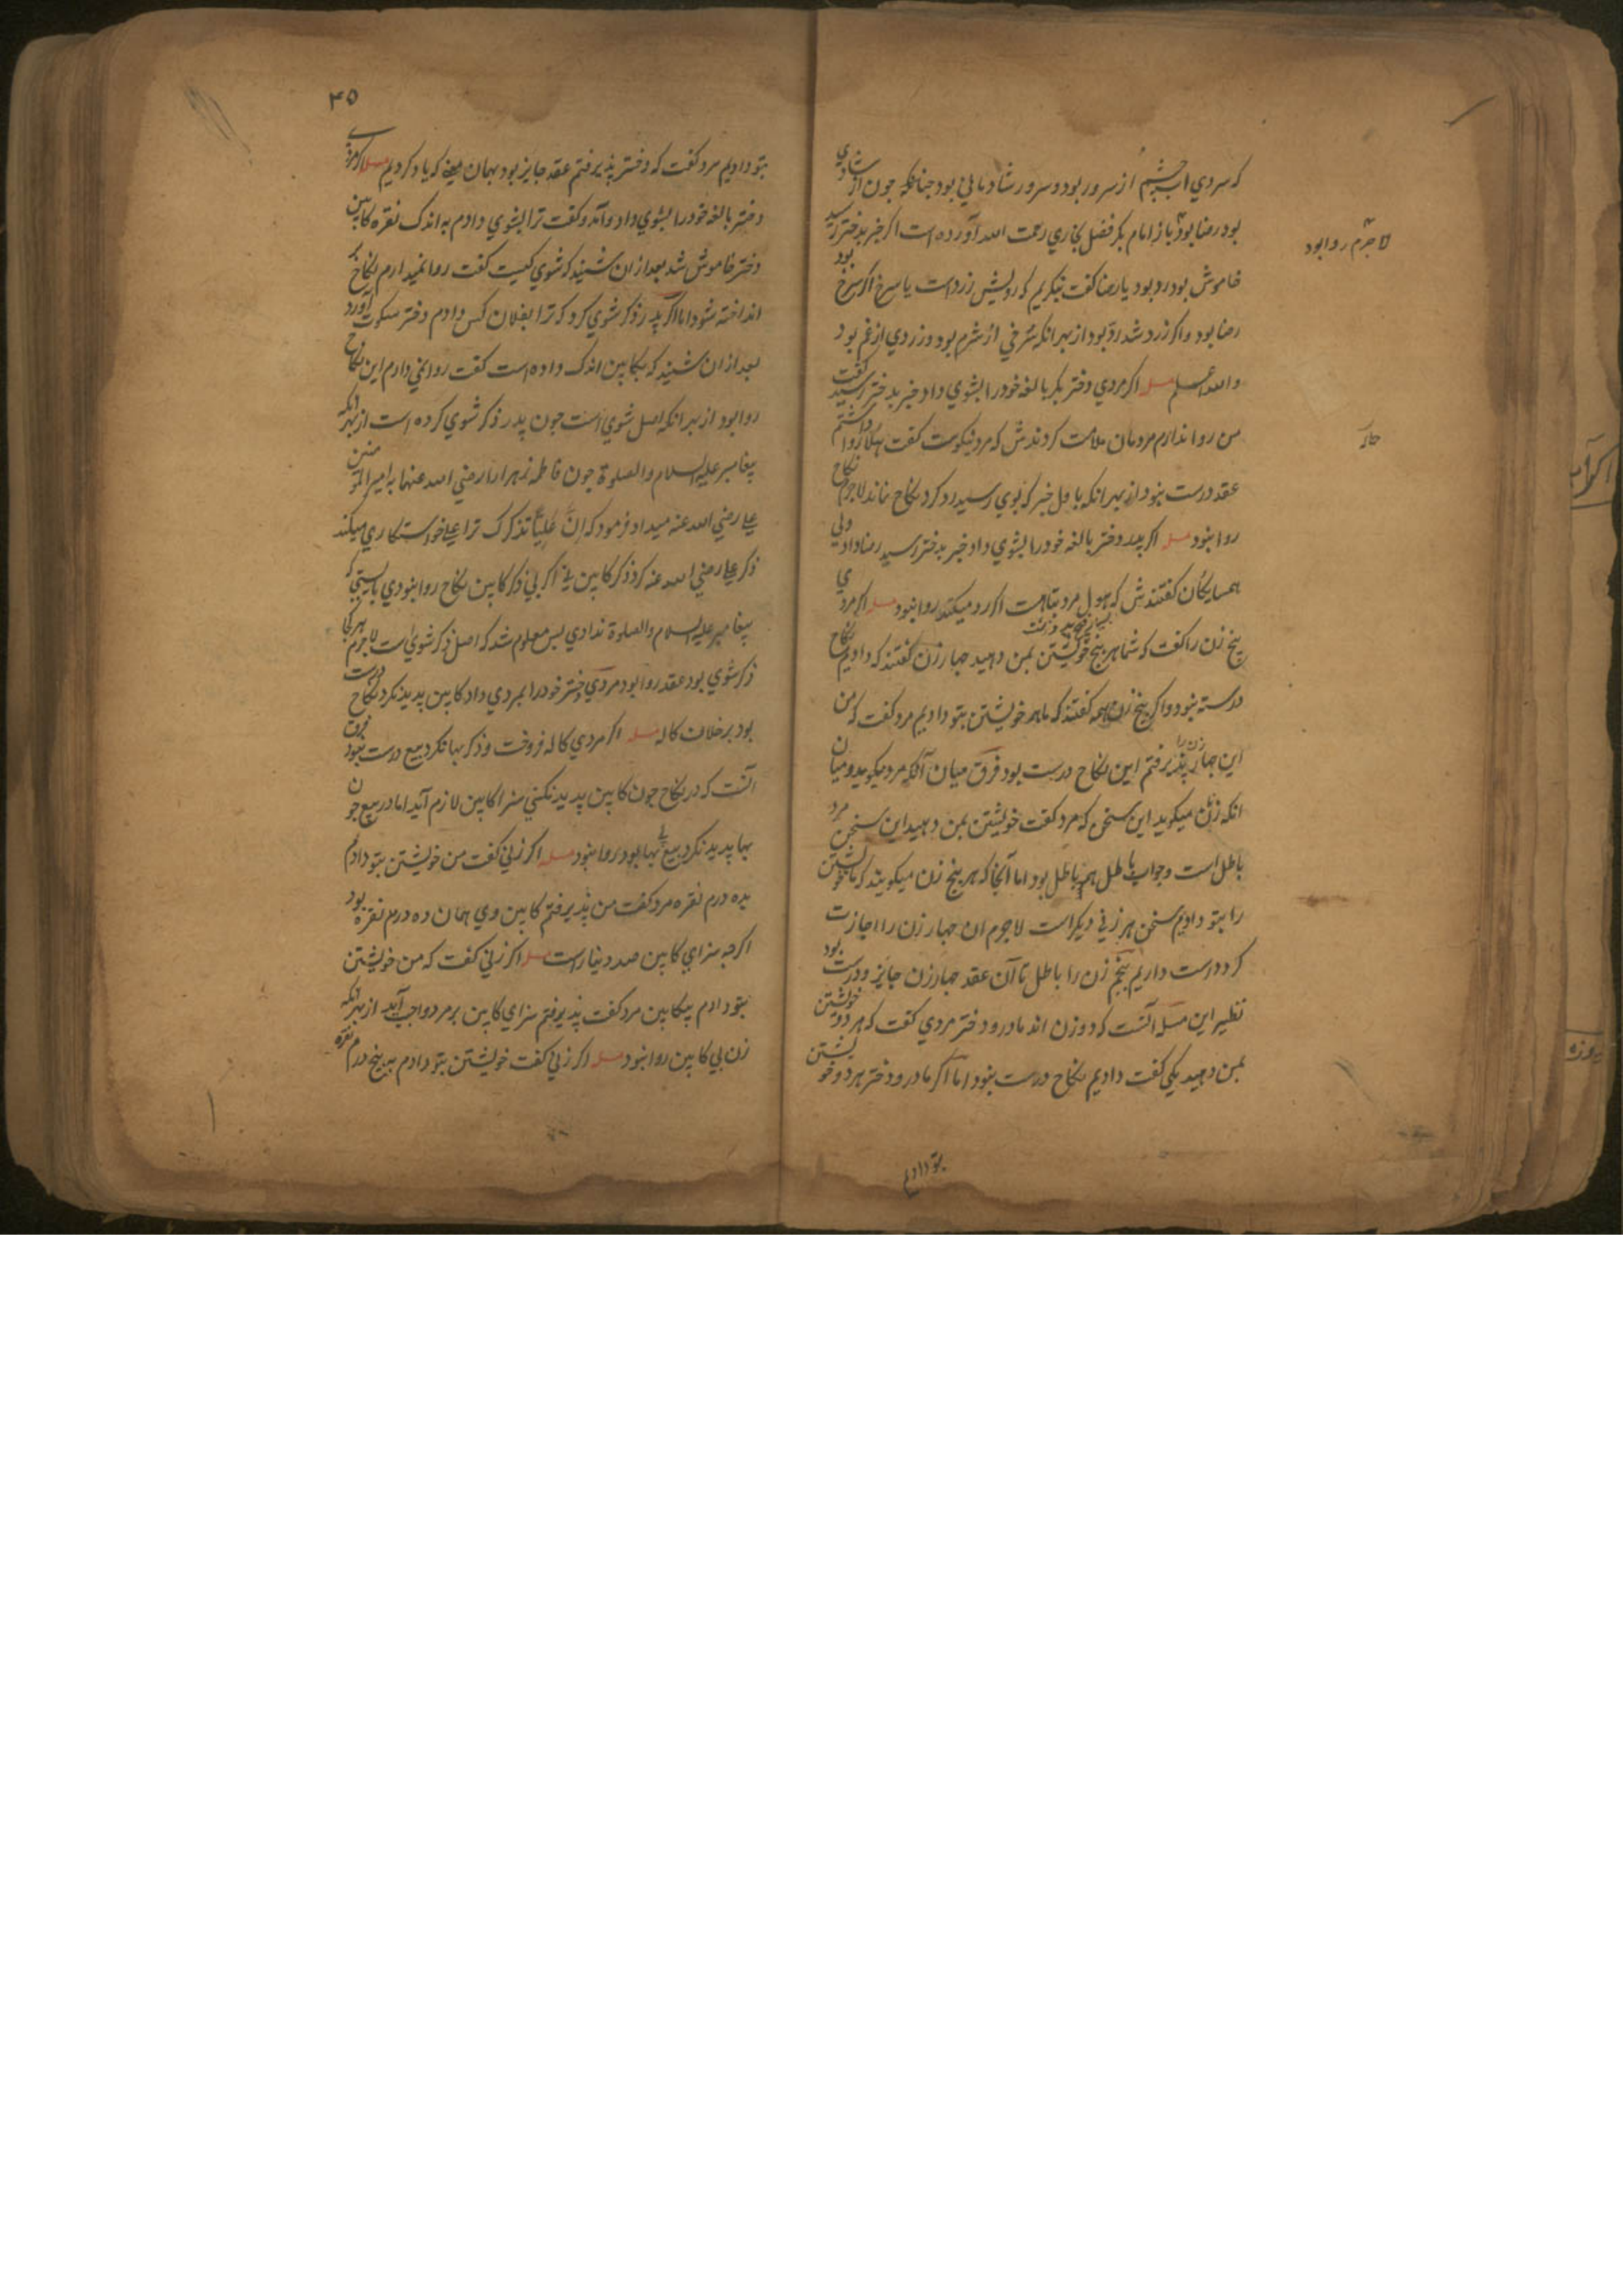 که سردي اب چشم از سرور بود و سرور شادماني بود چنانکه چون از شادي
بود رضا بود باز امام بکر فضل بخاري رحمت الله آورده است اکر خبر بدختر رسيد
لاجرم روا بود
خاموش بود رد بود يا رضا کفت بنکريم که رويش زرد است يا سرخ اکر سرخ بود
رضا بود و اکر زرد شد رد بود از بهر انکه سرخي از شرم بود و زردي از غم بود
والله اعلم مسله اکر مردي دختر بکر بالغه خود را بشوي داد خبر بدختر رسيد کفت
من روا ندارم مردمان ملامت کردندش که مرد نيکوست کفت روا داشتم
عقد درست نبود از بهر انکه باول خبر که بوي رسيد رد کرد نکاح نماند لاجرم نکاح
روا نبود مسله اکر پدر دختر بالغه خود را بشوي داد خبر بدختر رسيد رضا داد ولي
همسايکان کفتندش که مرد اکر رد ميکند روا نبود مسله اکر مردي
پنج زن را کفت که شما هر پنج خويشتن بمن دهيد چهار زن کفتند که داديم نکاح
درست نبود و اکر پنج زن همه کفتند که ما هر خويشتن بتو داديم مرد کفت که من
اين چهار زن را پذيرفتم اين نکاح درست بود فرق ميان آنکه مرد ميکويد و ميان
انکه زنان ميکويد اين سخن که مرد کفت خويشتن بمن دهيد اين سخن مرد
باطل است و جواب باطل هم باطل بود اما آنجا که هر پنج زن ميکويند که ما خويشتن
را بتو داديم سخن هر زني ديکر است لاجرم ان چهار زن را اجازت
کرد درست داريم پنجم زن را باطل تا آن عقد چهار زن جايز و درست بود
نظير اين مسله آنست که دو زن اند مادر و دختر مردي کفت که هر دو خويشتن
بمن دهيد يکي کفت داديم نکاح درست نبود اما اکر مادر و دختر هر دو خويشتن
بتو داديم
۴۵
بتو داديم مرد کفت که دختر پذيرفتم عقد جايز بود بهمان معني که ياد کرديم مسله اکر مردي
دختر بالغه خود را بشوي داد و آمد و کفت ترا بشوي دادم به اندک نقره کابين
دختر خاموش شد بعد از ان شنيد که شوي کيست کفت روا نميدارم نکاح بر
انداخته شود اما اکر پدر ذکر شوي کرد که ترا بفلان کس دادم دختر سکوت آورد
بعد از ان شنيد که بکابين اندک داده است کفت روا نمي دارم اين نکاح
روا بود از بهر انکه اصل شوي است چون پدر ذکر شوي کرده است از بهر انکه
پيغامبر عليه السلام والصلوة چون فاطمه زهرا را رضي الله عنها به امير المومنين
علي رضي الله عنه ميداد فرمود که اِنَّ عَلِيّاً تذکرک ترا علي خواستکاري ميکند
ذکر علي رضي الله عنه کرد ذکر کابين ني اکر بي ذکر کابين نکاح روا نبودي بايستي که
پيغامبر عليه السلام والصلوة ندادي پس معلوم شد که اصل ذکر شوي است لاجرم هر کجا
ذکر شوي بود عقد روا بود مردي دختر خود را بمردي داد کابين پديد نکرد نکاح درست
بود برخلاف کاله مسله اکر مردي کاله فروخت و ذکر بها نکرد بيع درست نبود فرق
آنست که در نکاح چون کابين پديد نکني سزا کابين لازم آيد اما در بيع چون
بها پديد نکرد بيع بي بها بود روا نبود مسله اکر زني کفت من خويشتن بتو دادم
بده درم نقره مرد کفت من پذيرفتم کابين وي همان ده درم نقره بود
اکرچه سزاي کابين صد دينار است مسله اکر زني کفت که من خويشتن
بتو دادم بيکابين مرد کفت پذيرفتم سزاي کابين بر مرد واجب آيد از بهر انکه
زن بي کابين روا نبود مسله اکر زني کفت خويشتن بتو دادم به پنج درم نقره